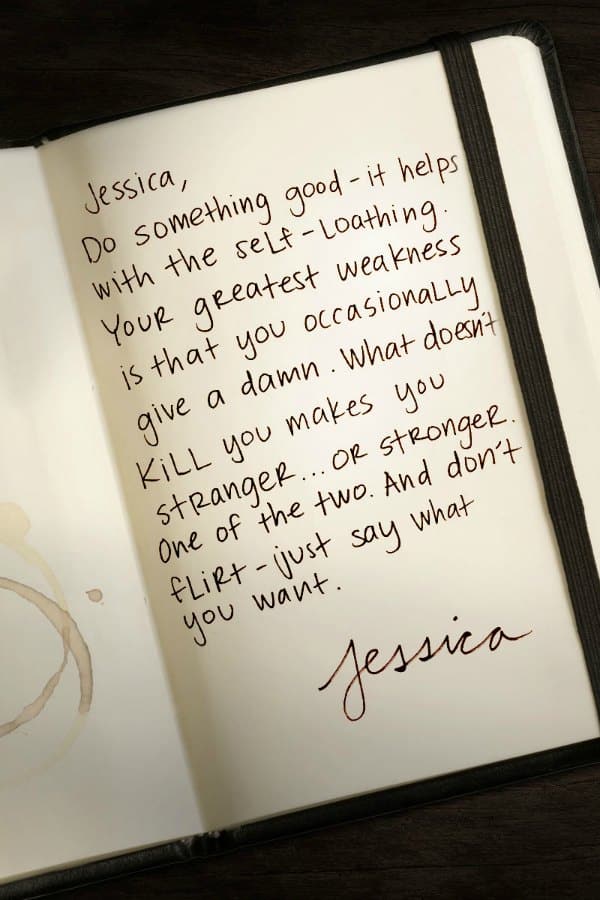 Jessica,
Do something good - it helps
with the self-loathing.
Your greatest weakness
is that you occasionally
give a damn. What doesn't
kill you makes you
stranger... or stronger.
One of the two. And don't
flirt - just say what
you want.
Jessica